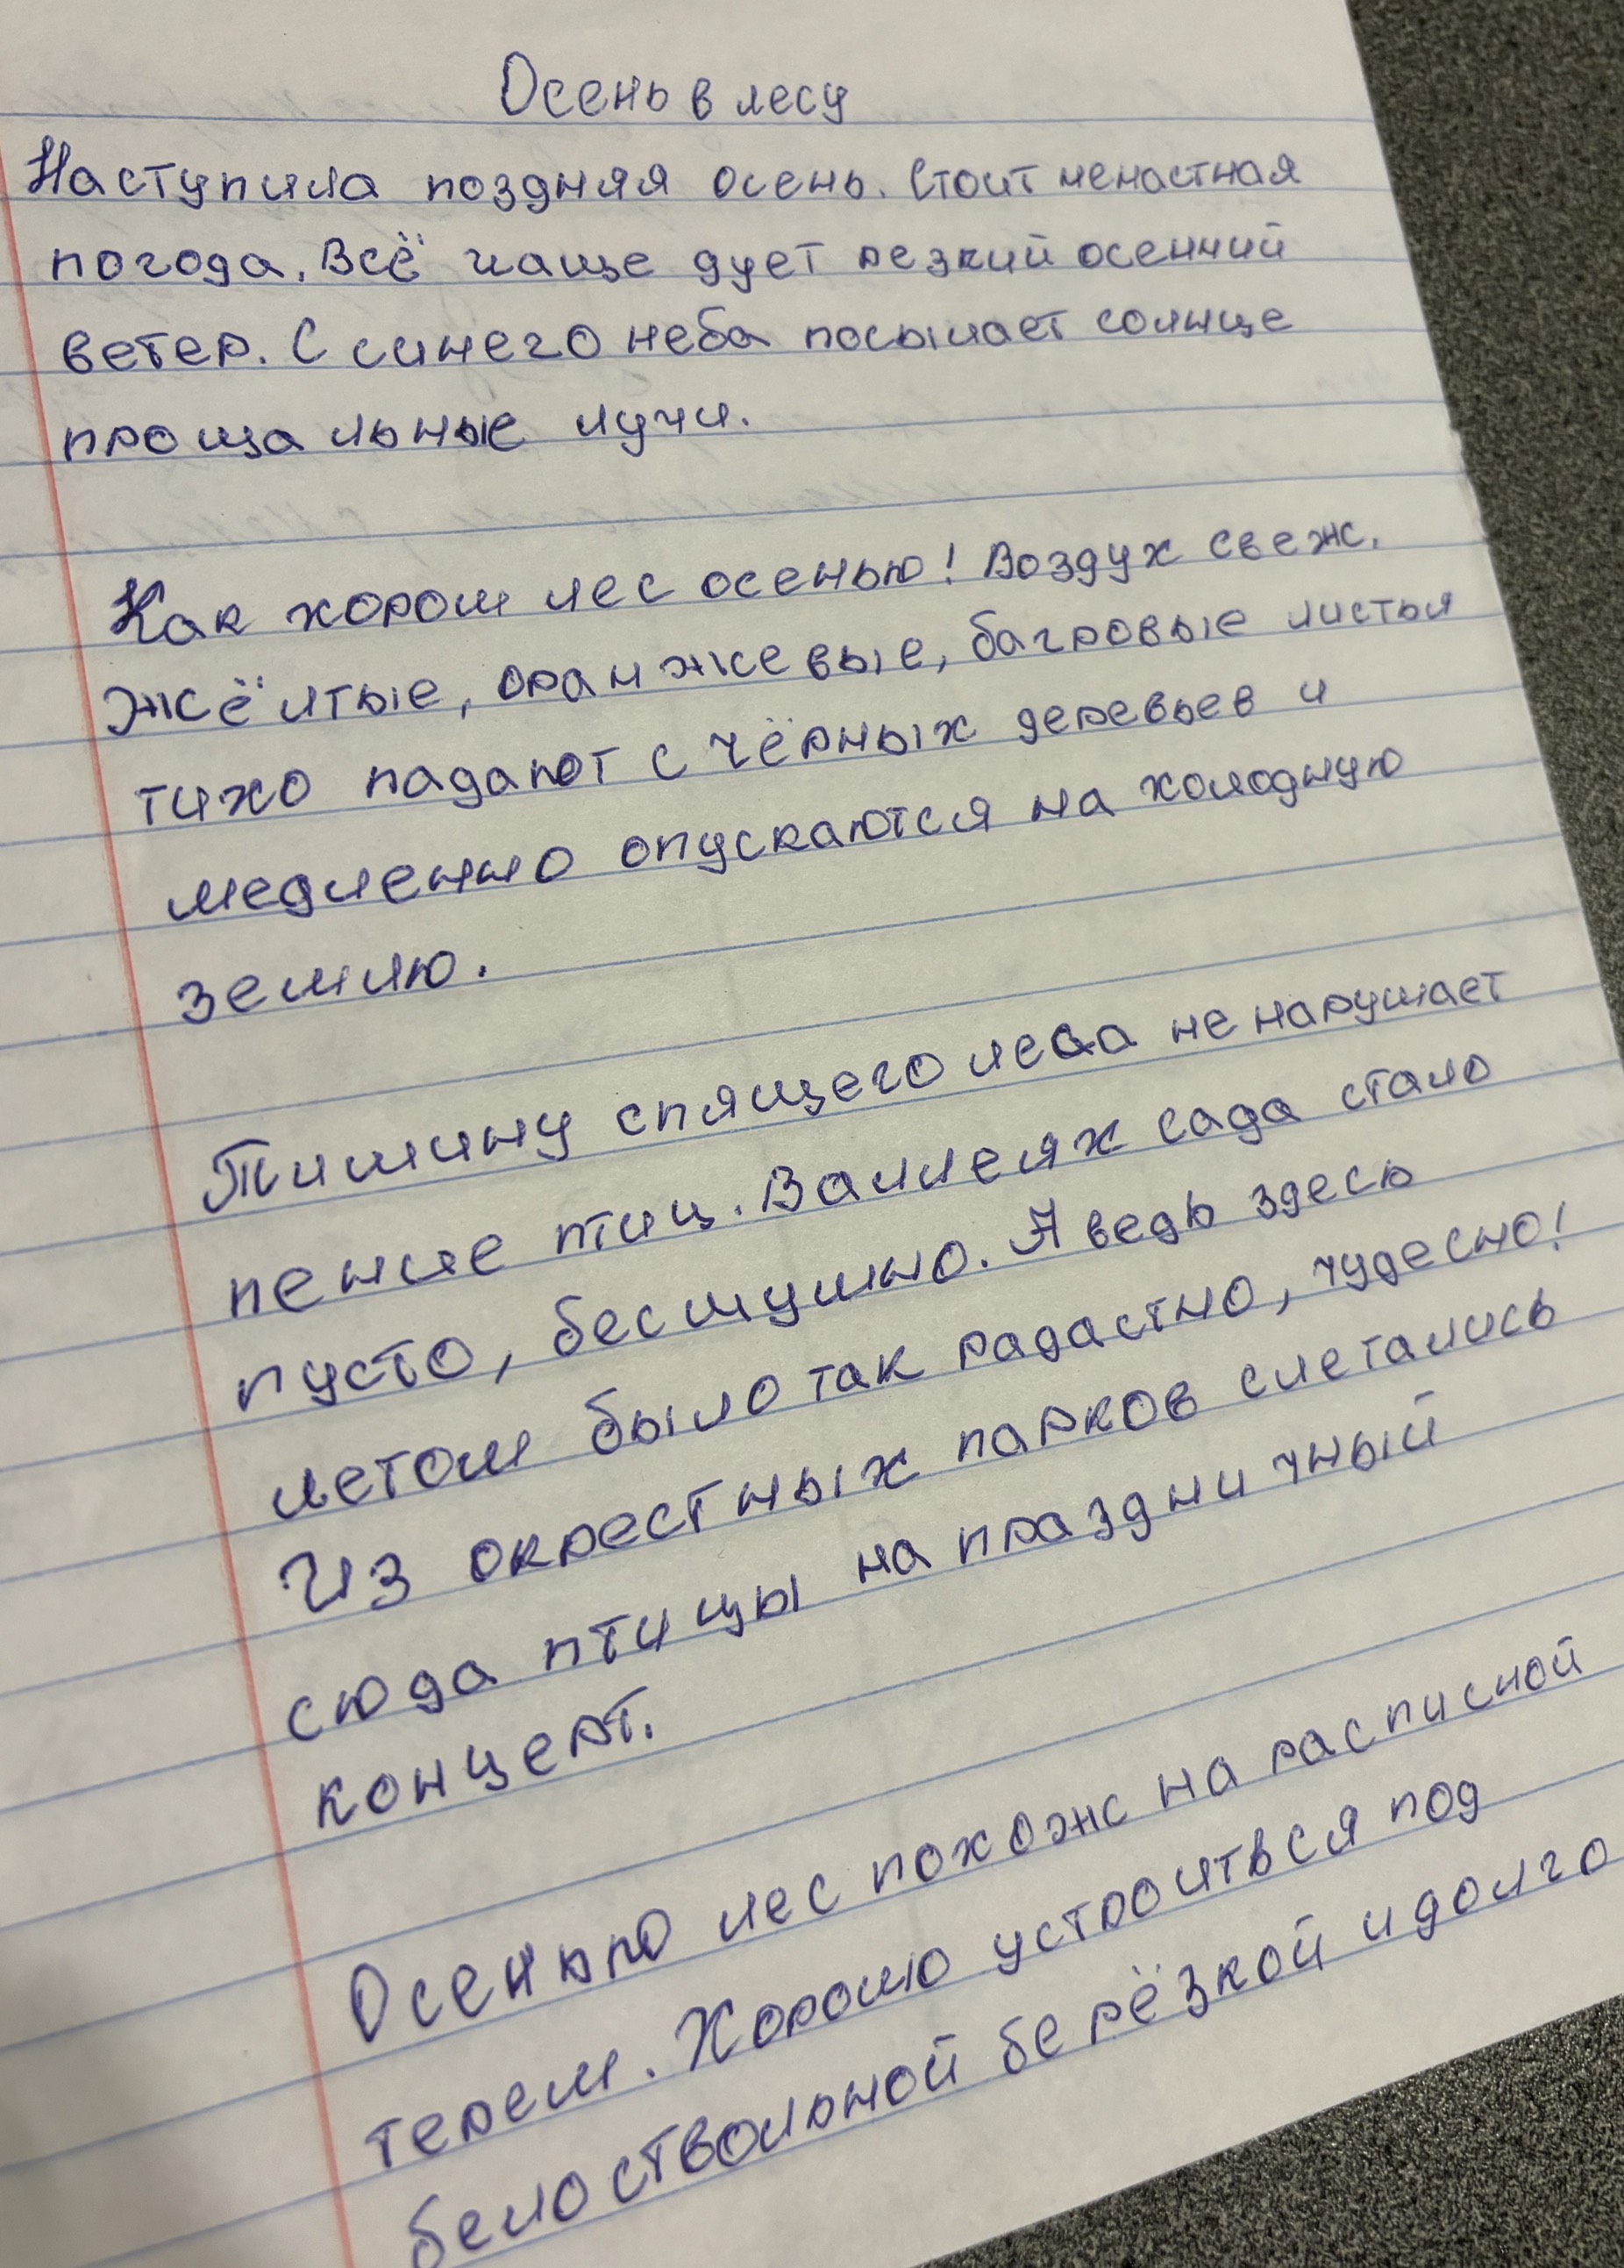 Осень в лесу
Наступила поздняя осень. Стоит ненастная
погода. Всё чаще дует резкий осенний
ветер. С синего неба посылает солнце
прощальные лучи.
Как хорош лес осенью! Воздух свеж.
Жёлтые, оранжевые, багровые листья
тихо падают с чёрных деревьев и
медленно опускаются на холодную
землю.
Тишину спящего леса не нарушает
пение птиц. В аллеях сада стало
пусто, бесшумно. А ведь здесь
летом было так радастно, чудесно!
Из окрестных парков слетались
сюда птицы на праздничный
концерт.
Осенью лес похож на расписной
терем. Хорошо устроитвся под
белоствольной берёзкой и долго